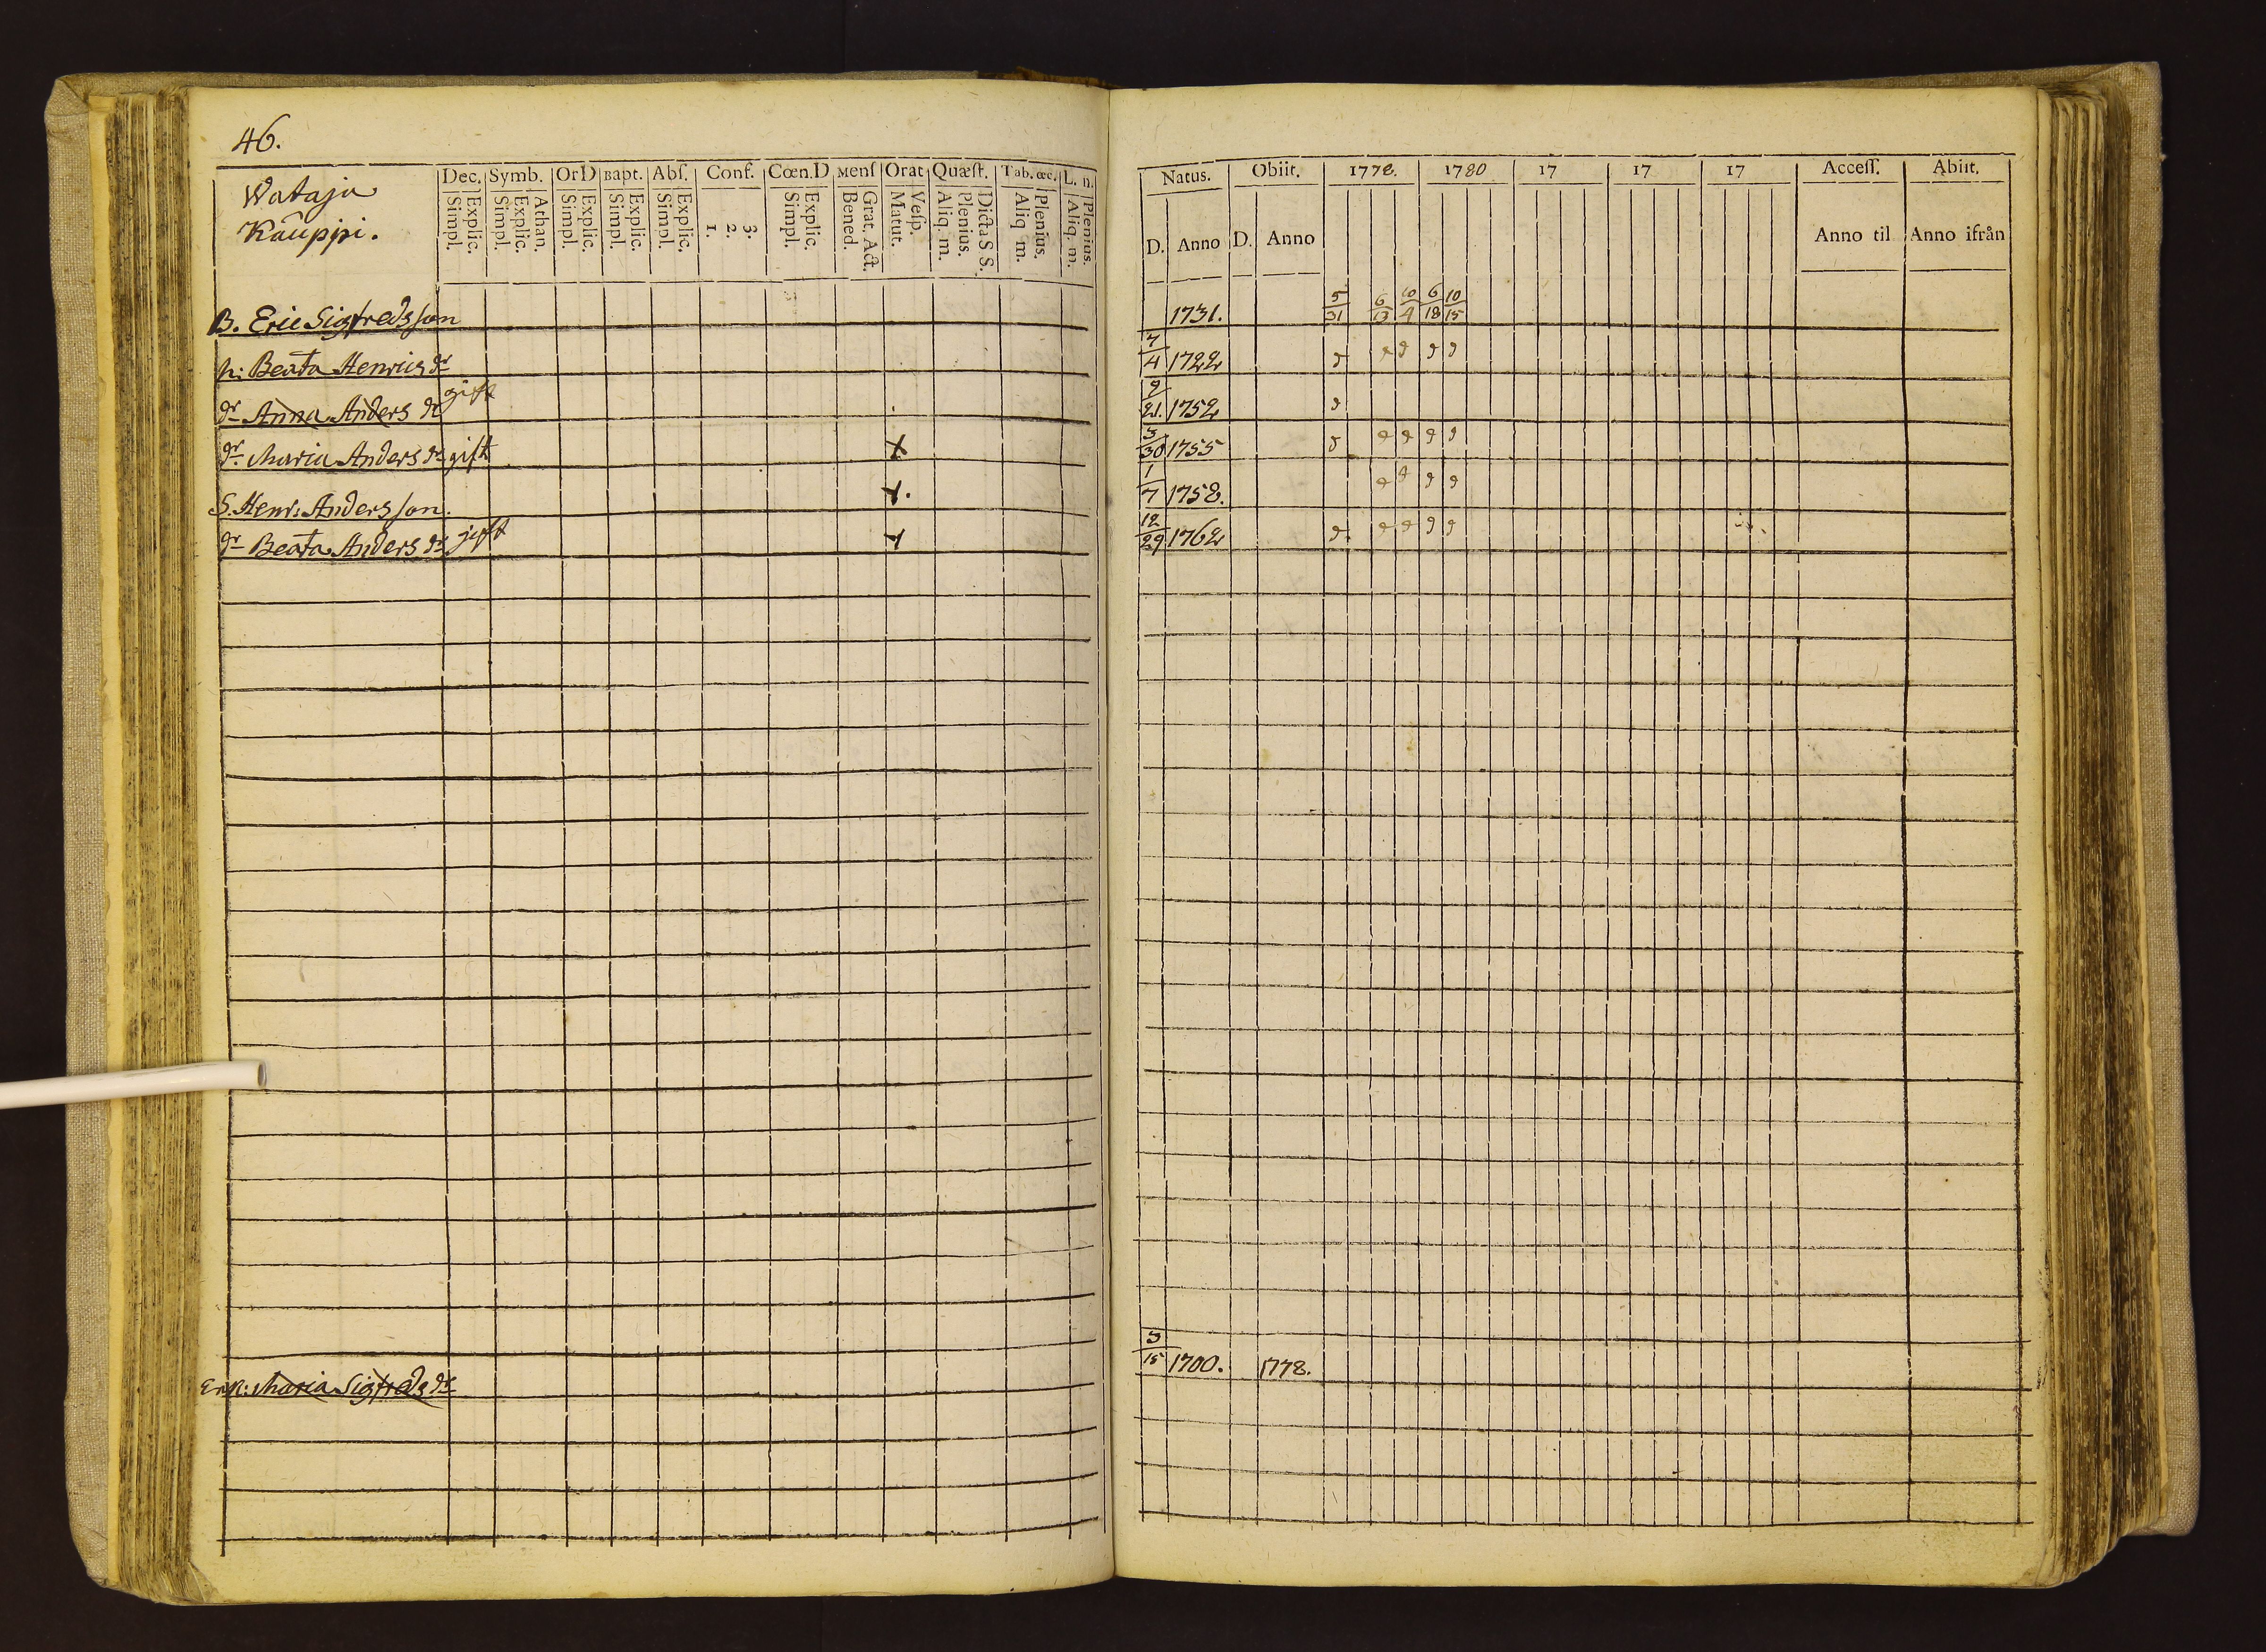 46.
Wataja
Kauppi.
Dec. Symb. Or D Bapt. Abſ. Conf. Cœn.D Menſ Orat Quæſt. Tab. œc. L. n.
Simpl. Explic. Simpl. Explic. Athan. Simpl. Explic. Simpl. Explic. Simpl. Explic. 1. 2. 3. Simpl. Explic. Bened. Grat. Act. Matut. Veſp. Aliq. m. Plenius. Dicta S S. Aliq m. Plenius. Aliq. m. Plenius.
Natus. Obiit. 1778. 1780 17 17 17 Acceſſ. Abiit.
D. Anno D. Anno Anno til Anno ifrån
B. Eric Sigfredsson 1731. 5/31 6/13 10/4 6/18 10/15
h: Beata Henrics dr 7/4 1722
dr Anna Anders dr gift 9/21. 1752
dr Maria Anders dr gift X 3/30 1755
S. Henr: Andersson. X. 1/7 1758.
dr Beata Anders dr gift X 12/29 1762
Enk: Maria Sigfreds dr 3/15 1700. 1778.